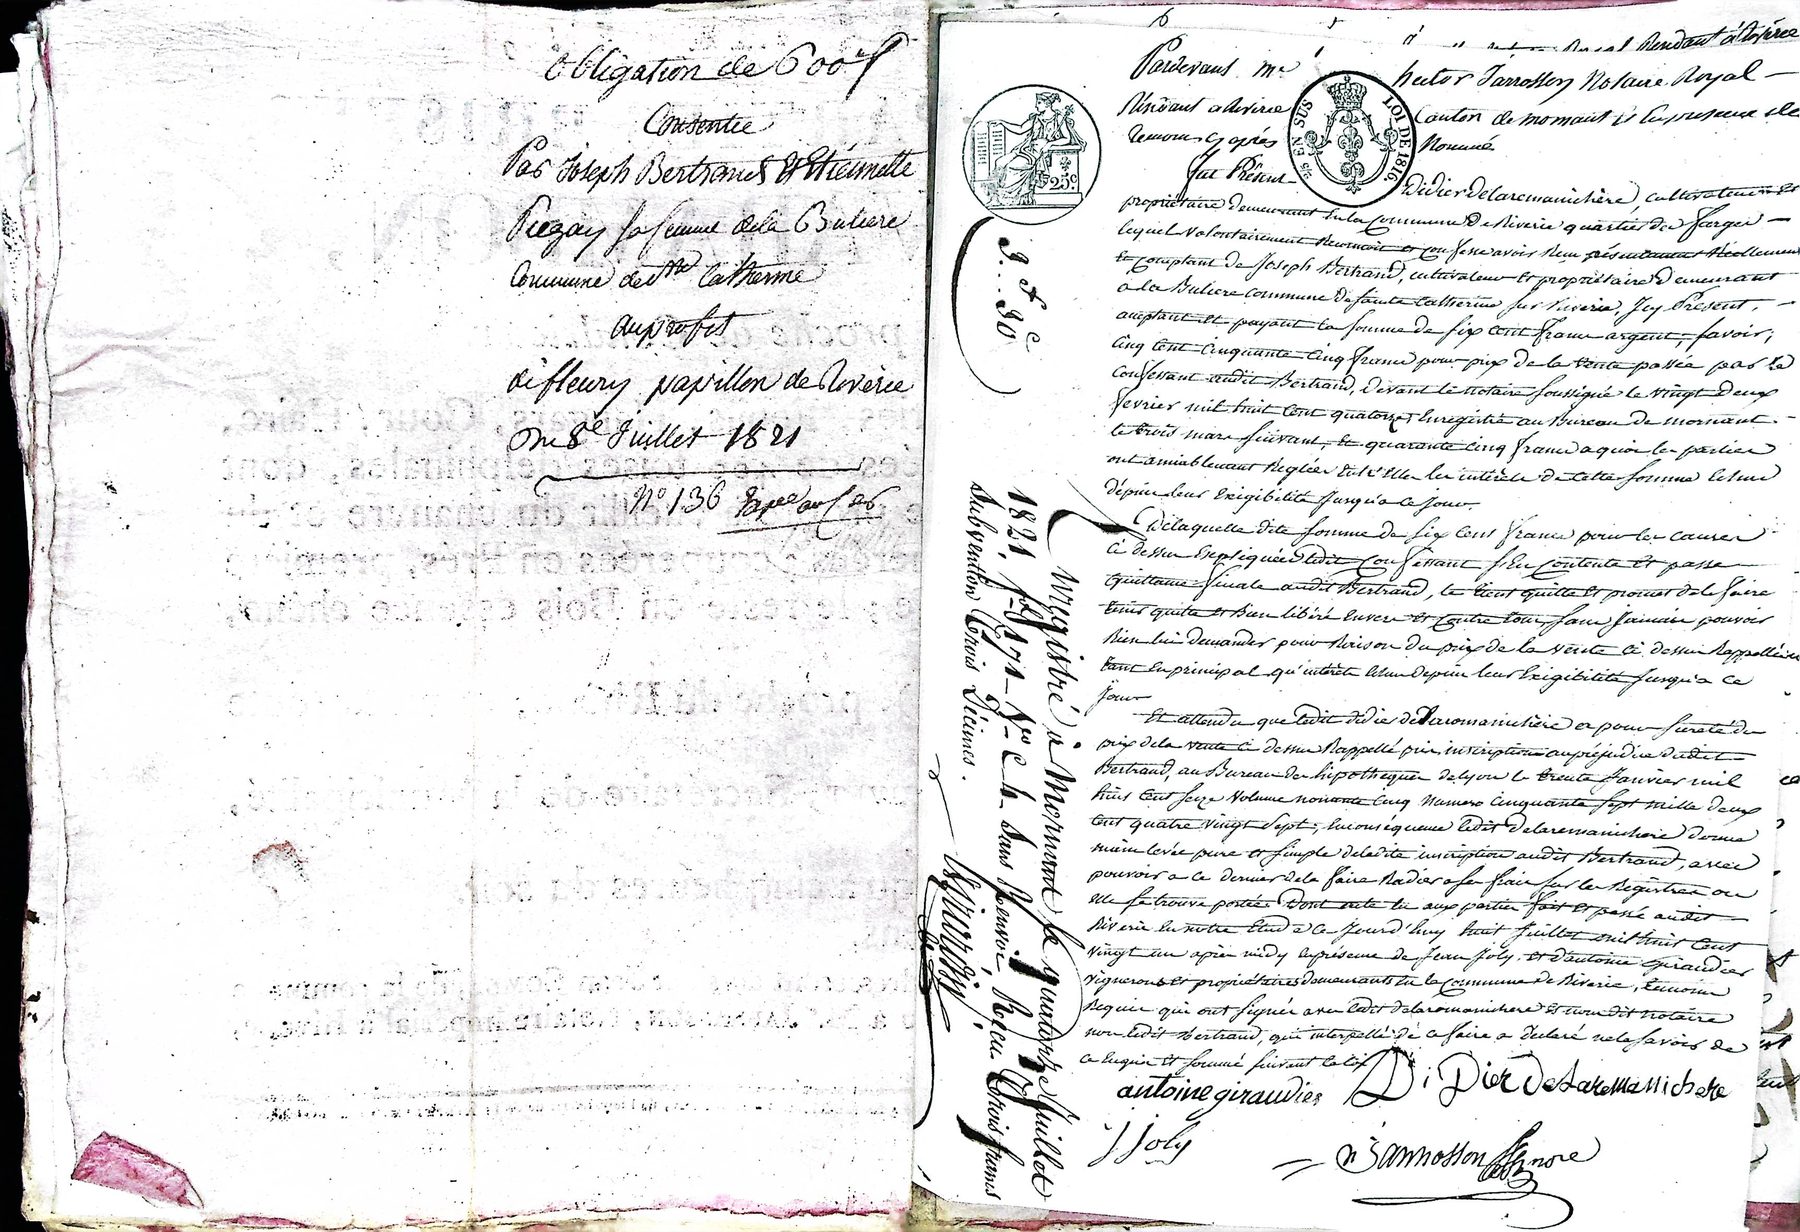 Obligation de 600 f
Consentie
Par Joseph Bertrand Et Etiennette
Piégay sa femme de la Buliere
Commune de Ste Catherine
au profit
de fleury papillon de Riverie
Du 8e Juillet 1821
N° 136
Royal Résidant à Riverie
Pardevant Me hector Jannosson Notaire Royal
Résidant a Riverie Canton de Mornant et En presence des
temoins cy après Nommé
EN SUS
LOI DE 1816.
25c
Fut Présent
Didier delaremanichère, cultivateur et
propriétaire demeurant En la Commune de Riverie quartier de Farges
lequel volontairement Reconnait et confesse avoir Reçu présentement Réellement
Et comptant de Joseph Bertrand, cultivateur Et propriétaire Demeurant
a la Buliere commune de sainte Catherine sur Riverie, Icy Présent,
comptant et payant la somme de six cent francs argent, savoir,
Cinq Cent Cinquante Cinq francs pour prix de la vente passée par le
Confessant audit Bertrand, devant le notaire soussigné le vingt deux
fevrier mil huit cent quatorze, Enregistré au Bureau de mornant
le trois mars suivant, et quarante cinq francs a quoi les parties
ont amiablement Reglées Entr'Elles les intérêts de cette somme Echus
dépuis leur Exigibilité jusqu'a ce jour.
De laquelle dite somme de six cent francs pour les causes
Ci dessus Expliquées ledit confessant s'En contente et passe
quittance finale audit Bertrand, le tient quitte Et promet de le faire
tenir quitte et Bien libéré Envers Et Contre tous, sans Jamais pouvoir
Rien lui demander pour Raison du prix de la vente ci dessus Rappellée
tant En principal qu'intérêts Echus depuis leur Exigibilité jusqu'a ce
jour
Et attendu que ledit didier delaremanichère a pour sureté du
prix de la vente ci dessus Rappellé pris inscription au préjudice dudit
Bertrand, au Bureau des hipotheques de Lyon le trente Janvier mil
huit Cent seize volume nonante cinq numero cinquante sept mille deux
cent quatre vingt sept, En conséquence ledit delaremanichère donne
main levée pure et simple de ladite inscription audit Bertrand, avec
pouvoir a ce dernier de la faire Radier a ses frais sur les Régistres ou
Elle se trouve portée. Dont acte lu aux parties fait Et passé audit
Riverie En notre Etude ce Jourd'huy huit Juillet mil huit Cent
vingt un après midy En présence de Jean Joly, et d'antoine Giraudier
vignerons Et propriétaires demeurants En la Commune de Riverie, temoins
Requis qui ont signé avec ledit delaremanichere Et nous dit notaire
non ledit Bertrand, qui interpellé de ce faire a déclaré ne le savoir de
ce Enquis Et sommé suivant la loi
antoine giraudier
Didier delaremanichere
J Joly
Jannosson
Enregistré à Mornant le quatorze Juillet
1821 Reçu trois francs
Subvention trois Décimes.
3 f 30 c